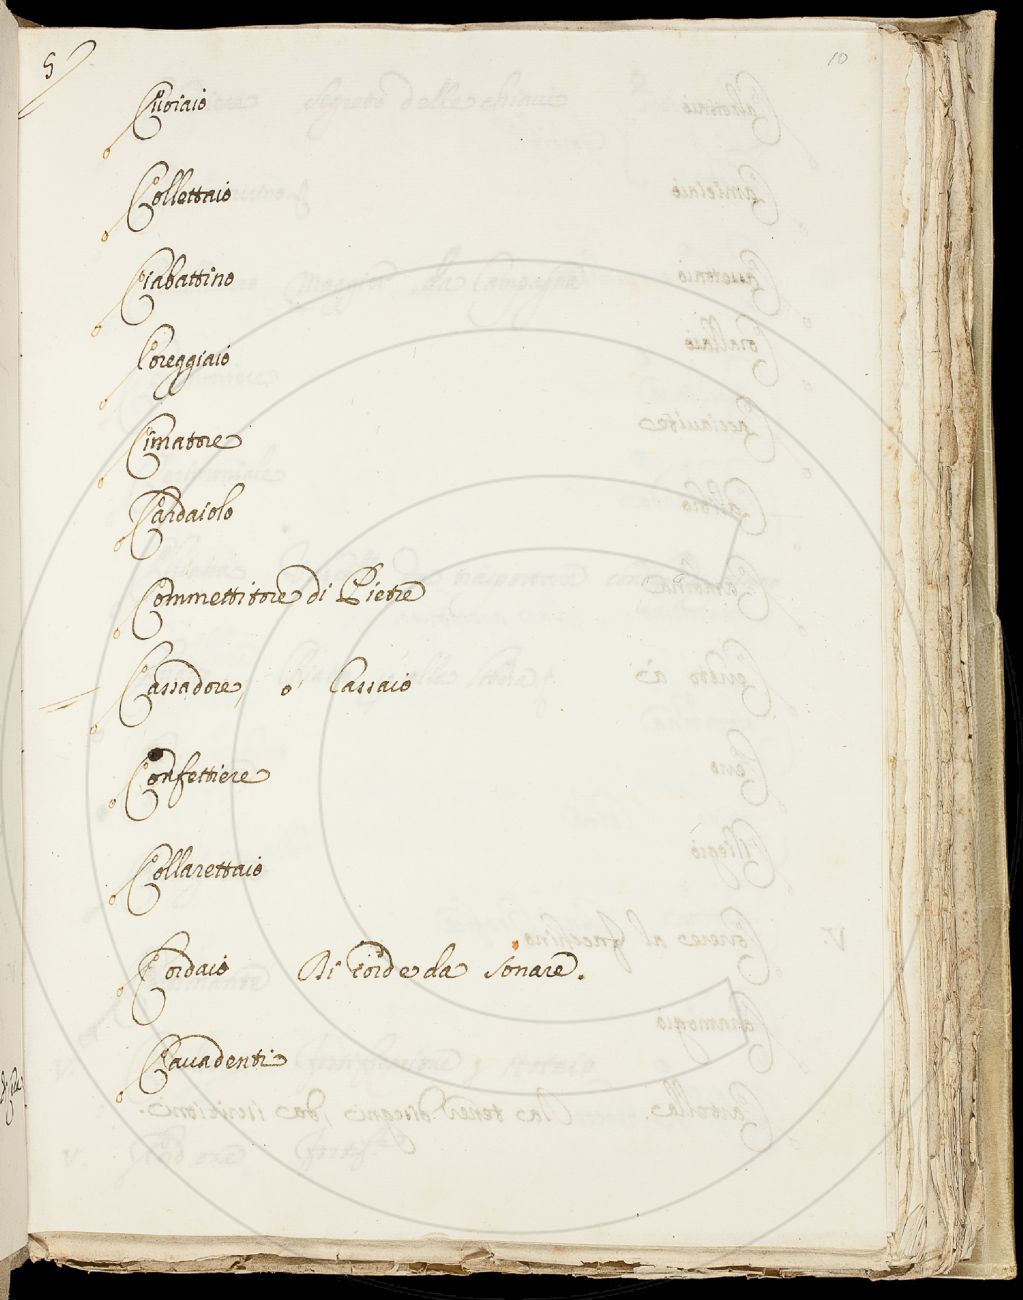 5
10
Cuoiaio
Collettaio
Ciabattino
Coreggiaio
Cimatore
Cardaiolo
Commettitore di Pietre
Cassadore, ó Cassaio
Confettiere
Collarettaio
Cordaio Di corde da sonare.
Cauadenti